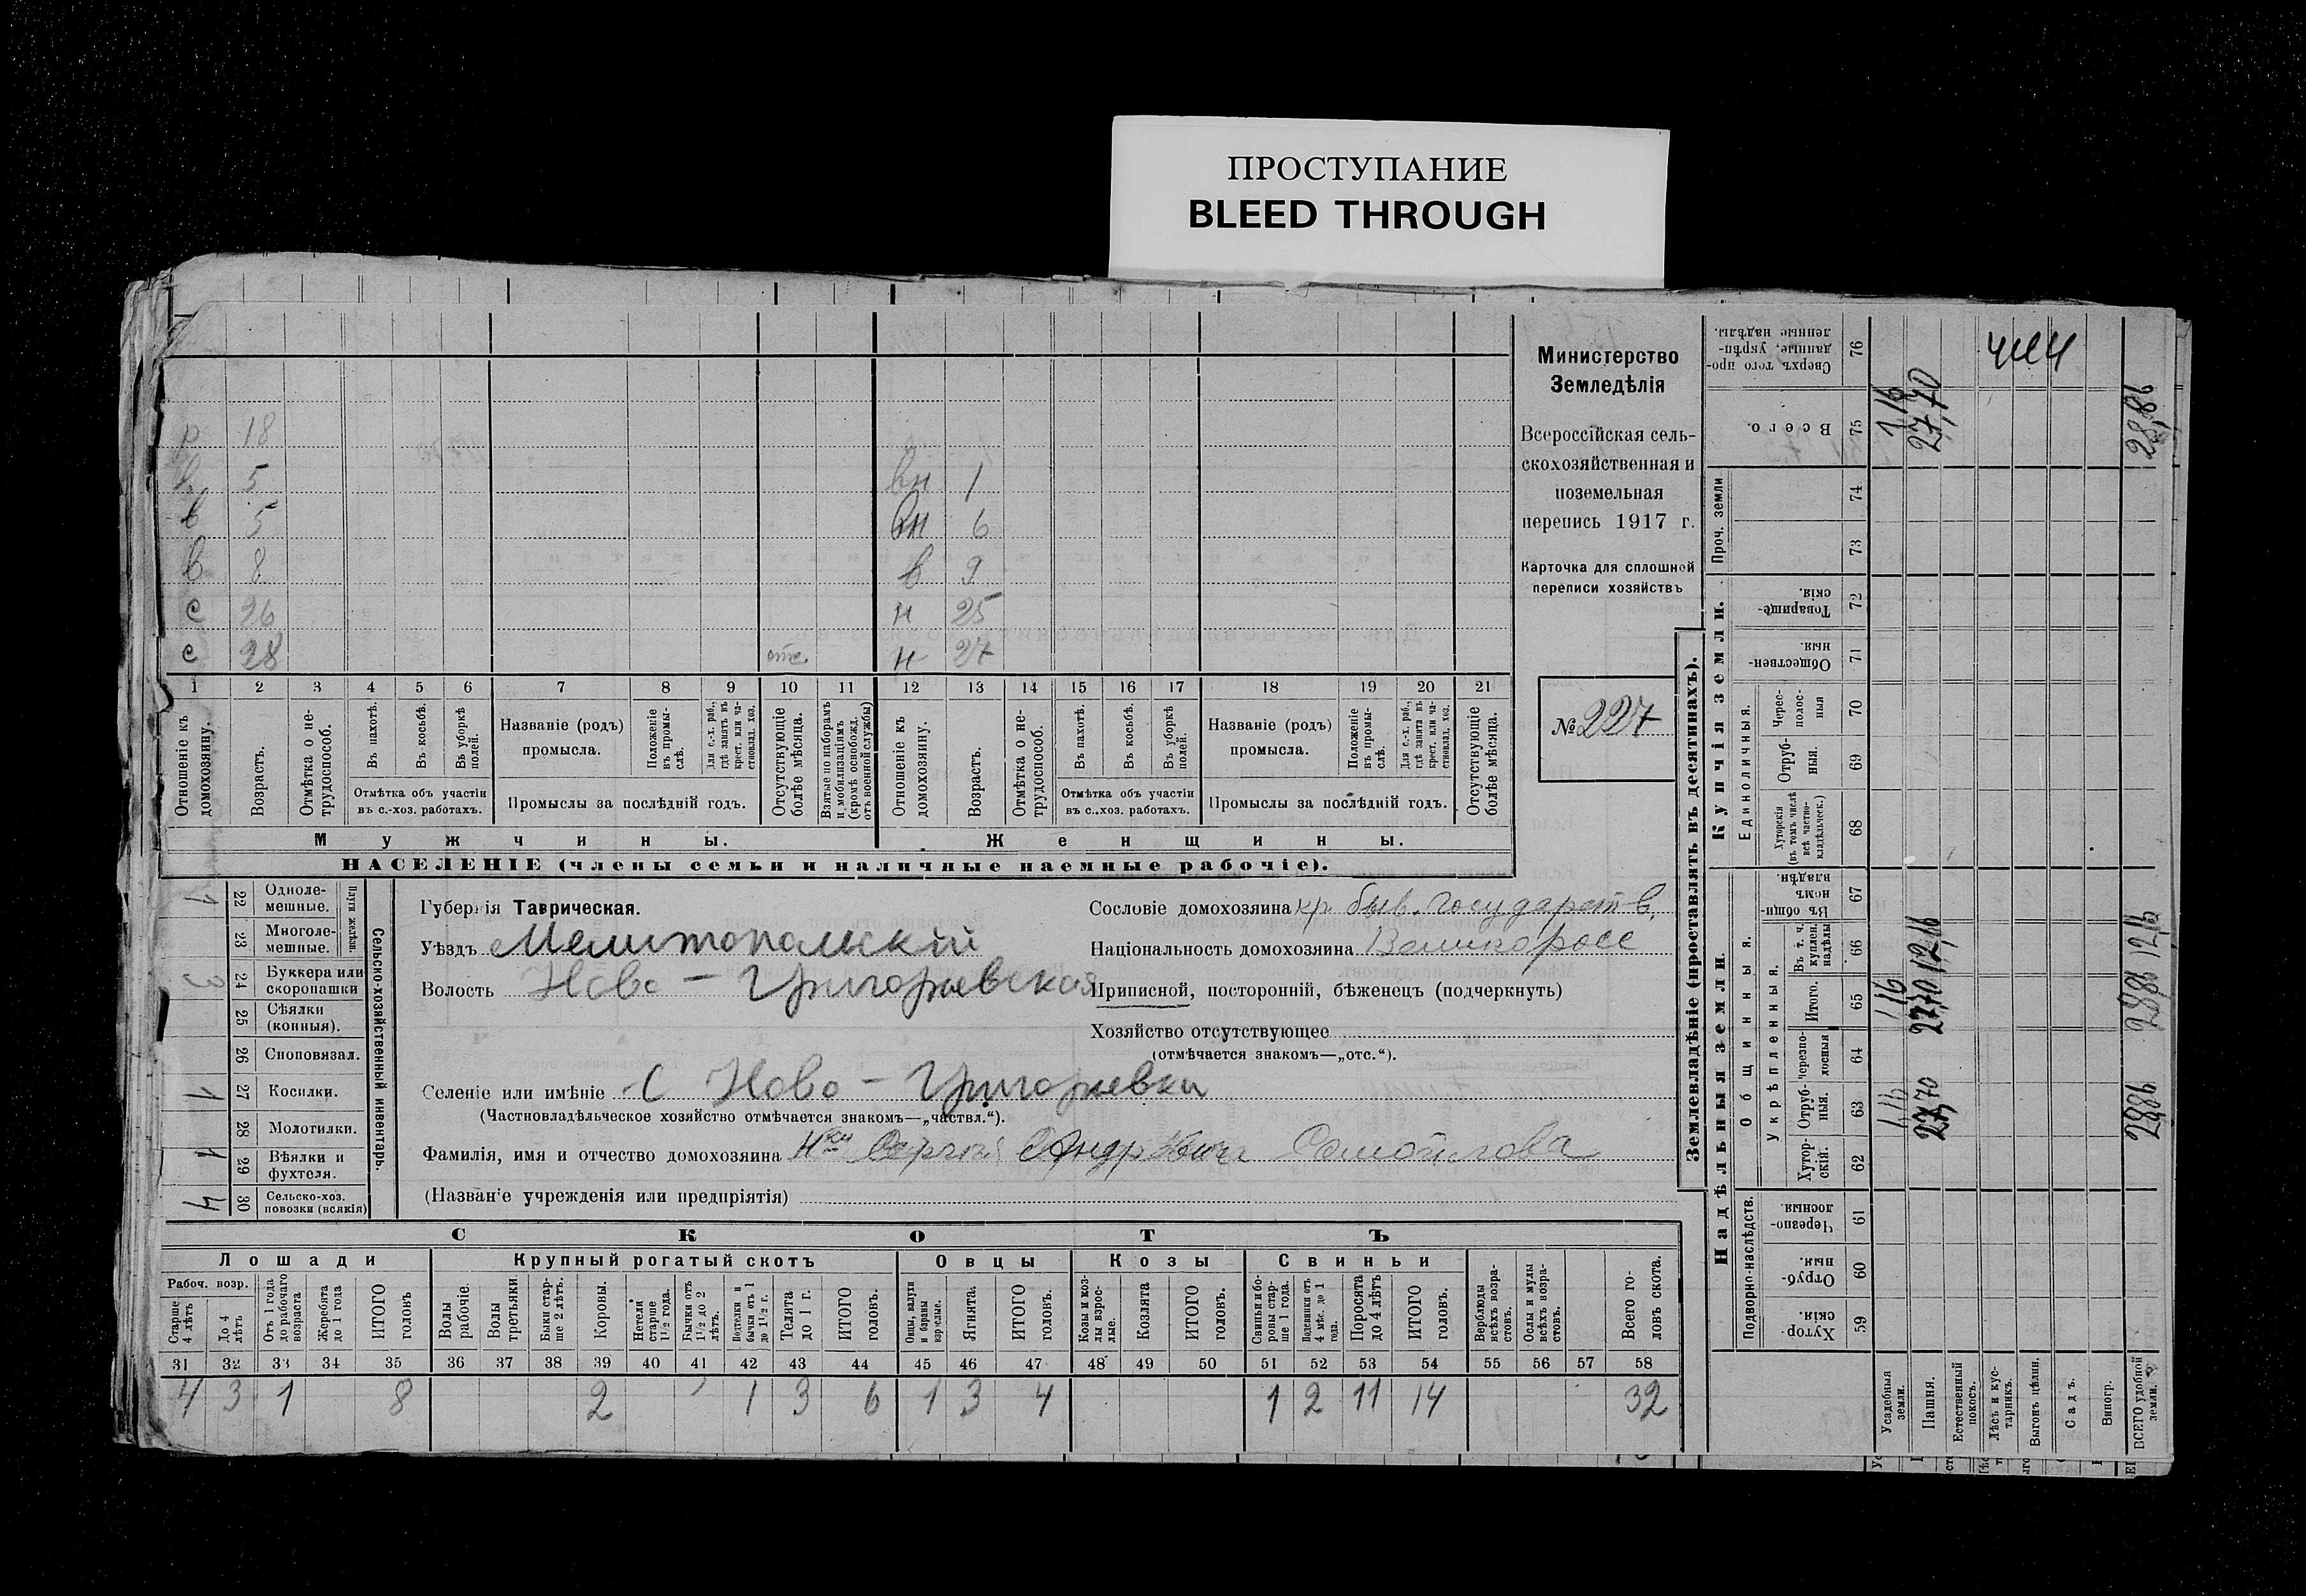 ПРОСТУПАНИЕ
BLEED THROUGH
Министерство
Земледѣлія
Всероссійская сель-
скохозяйственная и
поземельная
перепись 1917 г.
Карточка для сплошной
переписи хозяйствъ
№ 227
р 18
в 5 вн 1
в 5 вн 6
в 8 в 9
с 26 н 25
с 28 отс. н 27
1 2 3 4 5 6 7 8 9 10 11 12 13 14 15 16 17 18 19 20 21
Отношеніе къ домохозяину.
Возрастъ.
Отмѣтка о не-трудоспособ.
Въ пахотѣ.
Въ косьбѣ.
Въ уборкѣ полей.
Отмѣтка объ участіи въ с.-хоз. работахъ.
Названіе (родъ) промысла.
Положеніе въ промы-слѣ.
Для с.-х. раб., гдѣ занятъ въ крест. или ча-стновлад. хоз.
Промыслы за послѣдній годъ.
Отсутствующіе болѣе мѣсяца.
Взятые по наборамъ и мобилизаціямъ (кромѣ освобожд. отъ военной службы)
Отношеніе къ домохозяину.
Возрастъ.
Отмѣтка о не-трудоспособ.
Въ пахотѣ.
Въ косьбѣ.
Въ уборкѣ полей.
Отмѣтка объ участіи въ с.-хоз. работахъ.
Названіе (родъ) промысла.
Положеніе въ промы-слѣ.
Для с.-х. раб., гдѣ занята въ крест. или ча-стновлад. хоз.
Промыслы за послѣдній годъ.
Отсутствующіе болѣе мѣсяца.
Мужчины. Женщины.
НАСЕЛЕНІЕ (члены семьи и наличные наемные рабочіе).
Сельско-хозяйственный инвентарь.
Плуги желѣзн.
22 Одноле-мешные. 1
23 Многоле-мешные.
24 Буккера или скоропашки 3
25 Сѣялки (конныя).
26 Сноповязал.
27 Косилки. 1
28 Молотилки.
29 Вѣялки и фухтеля. 1
30 Сельско-хоз. повозки (всякія) 4
Губернія Таврическая.
Уѣздъ Мелитопольскій
Волость Ново-Григорьевская
Селеніе или имѣніе С Ново-Григорьевки
(Частновладѣльческое хозяйство отмѣчается знакомъ—„частвл.“).
Фамилія, имя и отчество домохозяина Н-ки Сергія Андреевича Самойлова
(Названіе учрежденія или предпріятія)
Сословіе домохозяина кр быв. государств.
Національность домохозяина Великоросс
Приписной, посторонній, бѣженецъ (подчеркнуть)
Хозяйство отсутствующее
(отмѣчается знакомъ—„отс.“).
СКОТЪ
Лошади Крупный рогатый скотъ Овцы Козы Свиньи
Рабоч. возр.
Старше 4 лѣтъ
До 4 лѣтъ
Отъ 1 года до рабочаго возраста
Жеребята до 1 года
ИТОГО головъ
Волы рабочіе.
Волы третьяки.
Быки стар-ше 2 лѣтъ.
Коровы.
Нетели старше 1½ года.
Бычки отъ 1½ до 2 лѣтъ.
Подтелки и бычки отъ 1 до 1½ г.
Телята до 1 г.
ИТОГО головъ.
Овцы, валухи и бараны взрослые.
Ягнята.
ИТОГО головъ.
Козы и коз-лы взрос-лые.
Козлята
ИТОГО головъ.
Свиньи и бо-ровы стар-ше 1 года.
Подсвинки отъ 4 мѣс. до 1 года.
Поросята до 4 лѣтъ
ИТОГО головъ.
Верблюды всѣхъ возра-стовъ.
Ослы и мулы всѣхъ возра-стовъ.
Всего го-ловъ скота.
31 32 33 34 35 36 37 38 39 40 41 42 43 44 45 46 47 48 49 50 51 52 53 54 55 56 57 58
4 3 1 8 2 1 3 6 1 3 4 1 2 11 14 32
Землевладѣніе (проставлять въ десятинахъ).
Надѣльныя земли. Купчія земли.
Подворно-наслѣдств.
Общинныя.
Укрѣпленныя.
Единоличныя.
Проч. земли
Хутор-скія. 59
Отруб-ныя. 60
Черезпо-лосныя. 61
Хутор-скія. 62
Отруб-ныя. 63
Черезпо-лосныя 64
Итого. 65
Въ т. ч. куплен. надѣлы 66
Въ общи-номъ владѣн. 67
Хуторскія (въ томъ числѣ всѣ частно-владѣльческ.) 68
Отруб-ныя. 69
Черес-полос-ныя 70
Обществен-ныя. 71
Товарище-скія. 72
73
74
Всего. 75
Сверхъ того про-данные, укрѣп-ленные надѣлы. 76
Усадебныя земли. 1,16 1,16 1,16
Пашня. 27,70 27,70 12,16 27,70
Естественный покосъ.
Лѣсъ и кус-тарникъ.
Выгонъ цѣлин.
Садъ.
Виногр.
ВСЕГО удобной земли. 28,86 28,86 12,16 28,86